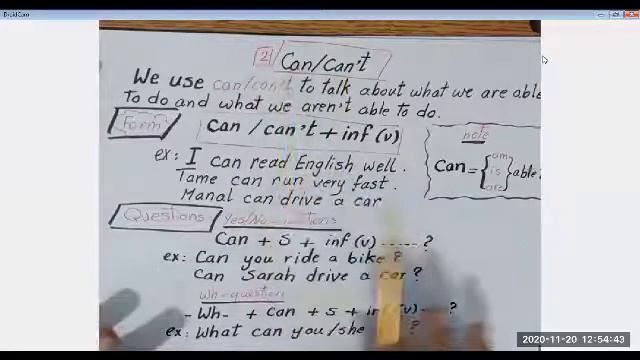 DroidCam
2 Can/Can't
We use can/can't to talk about what we are able
To do and what we aren't able to do.
Form
Can / can't + inf (v)
note
ex: I can read English well.
Can = { am is are } able
Tame can run very fast.
Manal can drive a car
Questions Yes/No
Can + S + inf (v) ..... ?
ex: Can you ride a bike ?
Can Sarah drive a car ?
Wh-question
- Wh- + can + S + inf (v) ?
ex: What can you/she ?
2020-11-20 12:54:43